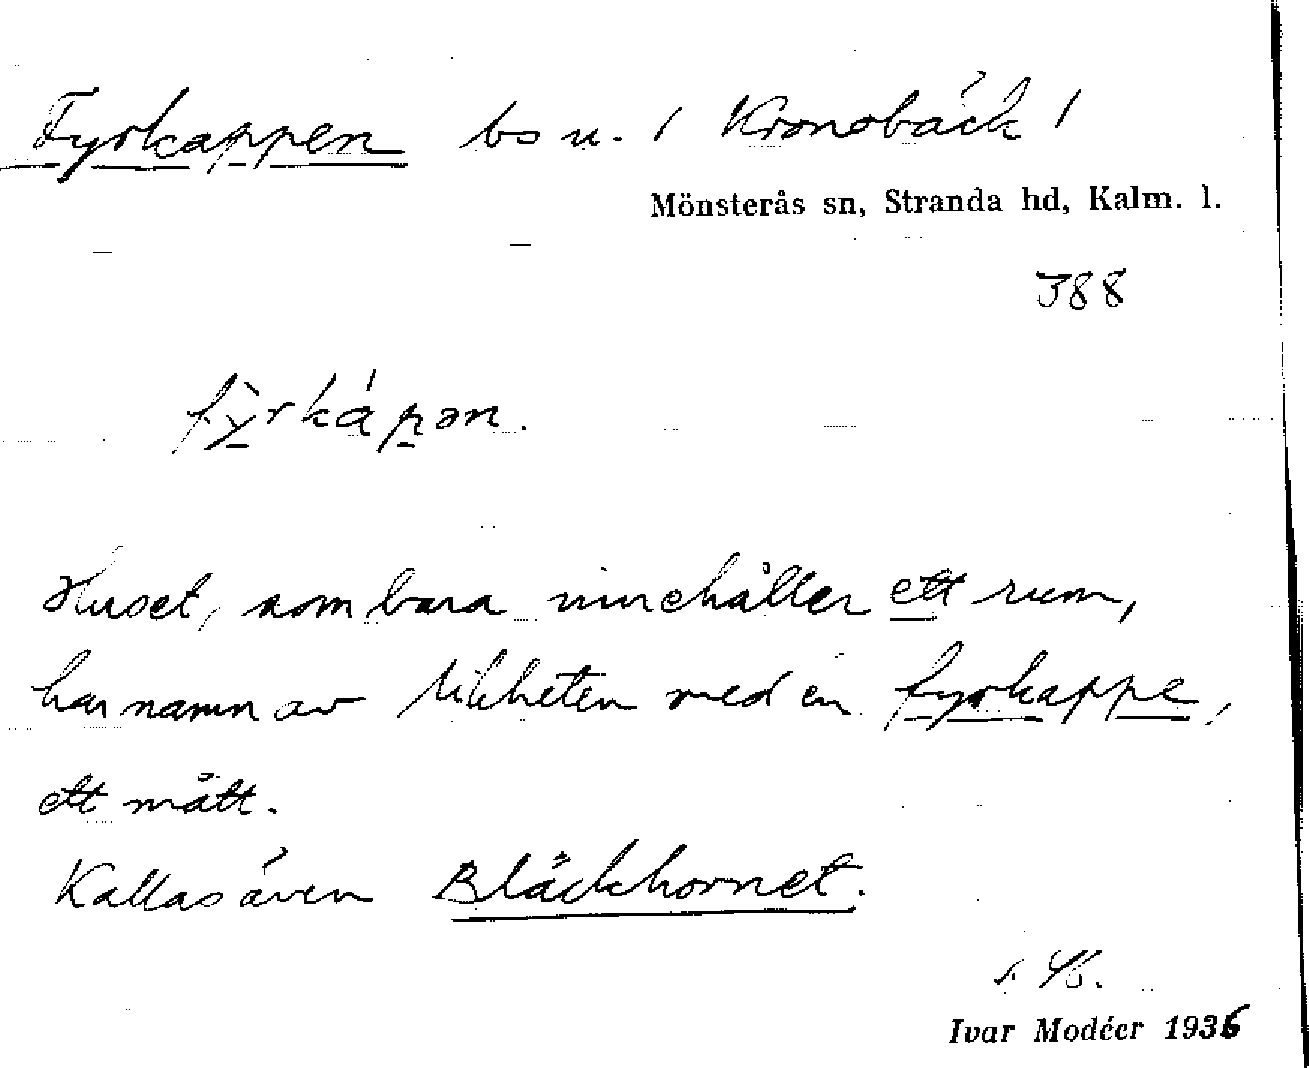 Fyrkappen bs u. / Kronobäck /
Mönsterås sn, Stranda hd, Kalm. l.
388
fỳrkápən.
Huset, som bara innehåller ett rum,
har namn av likheten med en fyrkappe,
ett mått.
Kallas även Bläckhornet.
Ivar Modéer 1936